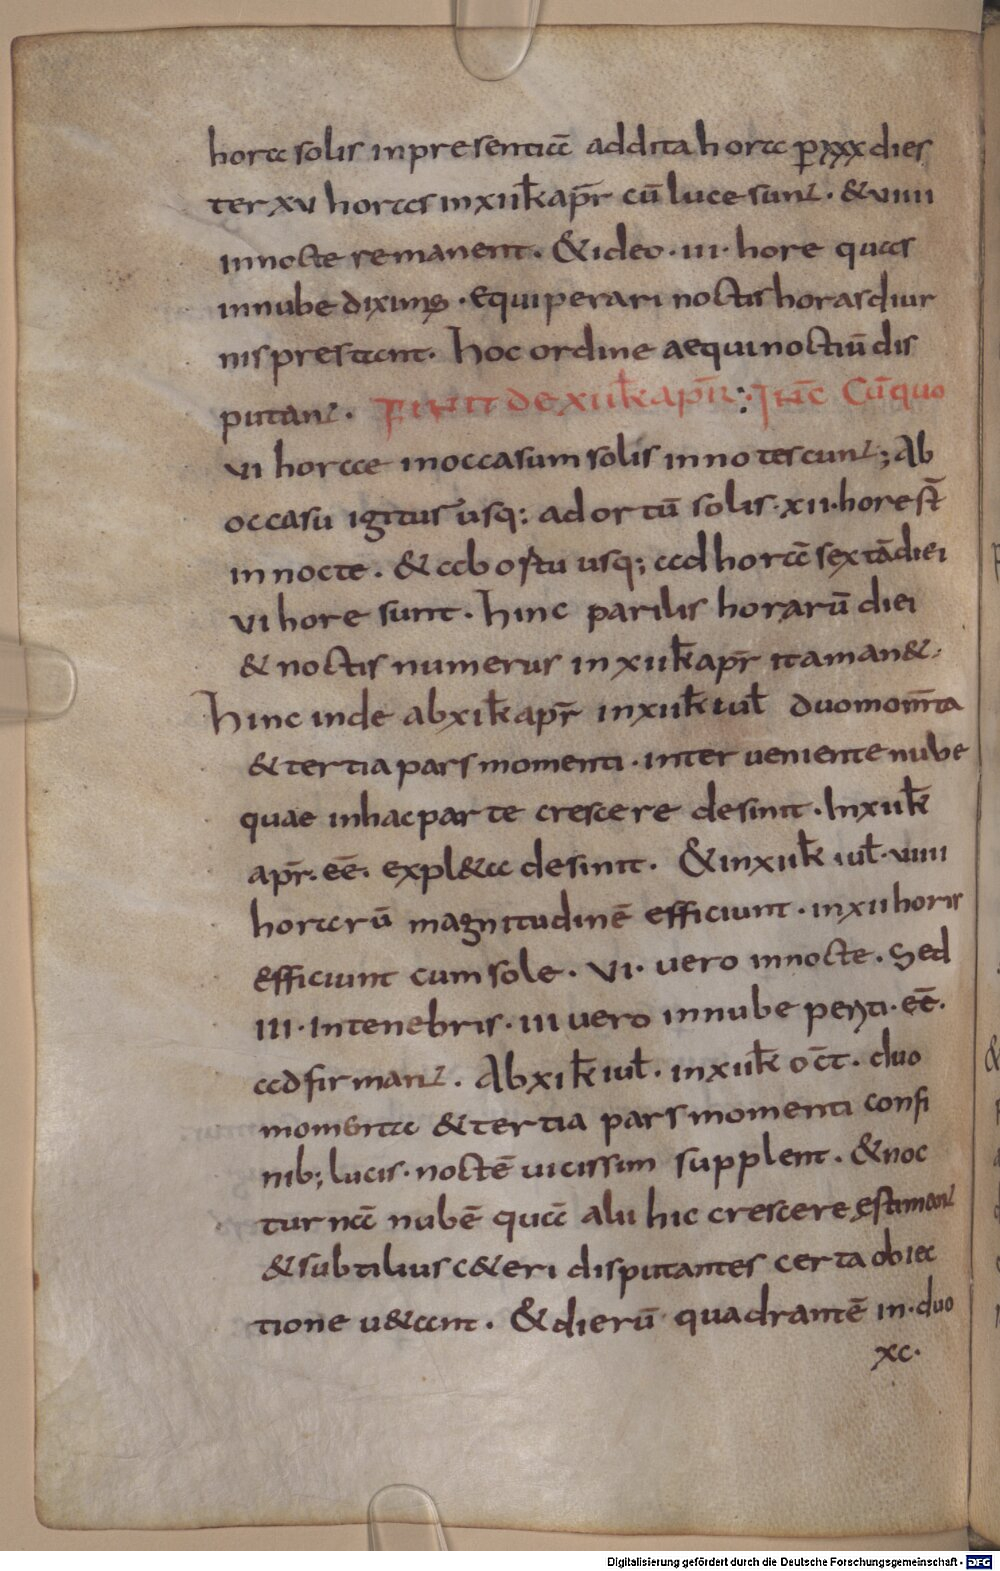 hora solis in presentia addita hora p̄ xxx dies
ter xv horas in xii k̄ apr̄ cū luce sunt · & viiii
in nocte remanent · & ideo · iii · hore quas
in nube diximus · equiperari noctis horas diur
nis prestant · hoc ordine aequinoctiū dis
putant · FINIT DE xii k̄ apr̄ : INC̄ Cū quo
vi horae in occasum solis innotescunt ; Ab
occasu igitus usq: ad ortū solis · xii · hore st̄
in nocte · & ab ostu usq; ad horā sextā diei
vi hore sunt · hinc parilis horarū diei
& noctis numerus in xii k̄ apr̄ ita man& ·
hinc inde ab xi k̄ apr̄ in xii k̄ iul̄ duo mom̄ta
& tertia pars momenti · inter veniente nube
quae in hac parte crescere desinit · In xii k̄
apr̄ · eē · expl&a desinit · & in xii k̄ iul̄ · viiii
horarū magnitudinē efficiunt · in xii horis
efficiunt cum sole · vi · vero in nocte · Sed
III · In tenebris · iii vero in nube perti · eē ·
adfirmant · Ab xi k̄ iul̄ · in xii k̄ oc̄t · duo
momenta & tertia pars momenti confi
nib; lucis · noctē vicissim supplent · & noc
turnā nubē quā alii hic crescere estimant
& subtilius c&eri disputantes certa obiec
tione u&ant · & dierū quadrantē in · duo
xc ·
Digitalisierung gefördert durch die Deutsche Forschungsgemeinschaft - DFG